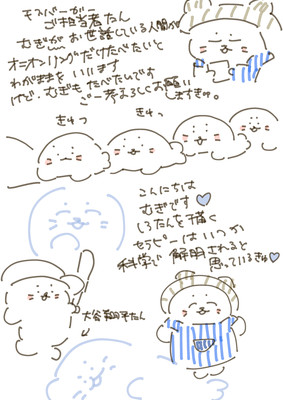 モスバーガー
ご担当者たん
むぎがお世話している人間が
オニオンリングだけたべたいと
わがままをいいます
けど、むぎもたべたいんです
ご一考よろしくお願い
しますきゅ。
きゅっ
きゅっ
こんにちは
むぎです
しろたんを描く
セラピーはいつか
科学で解明されると
思っているきゅ
大谷翔平たん